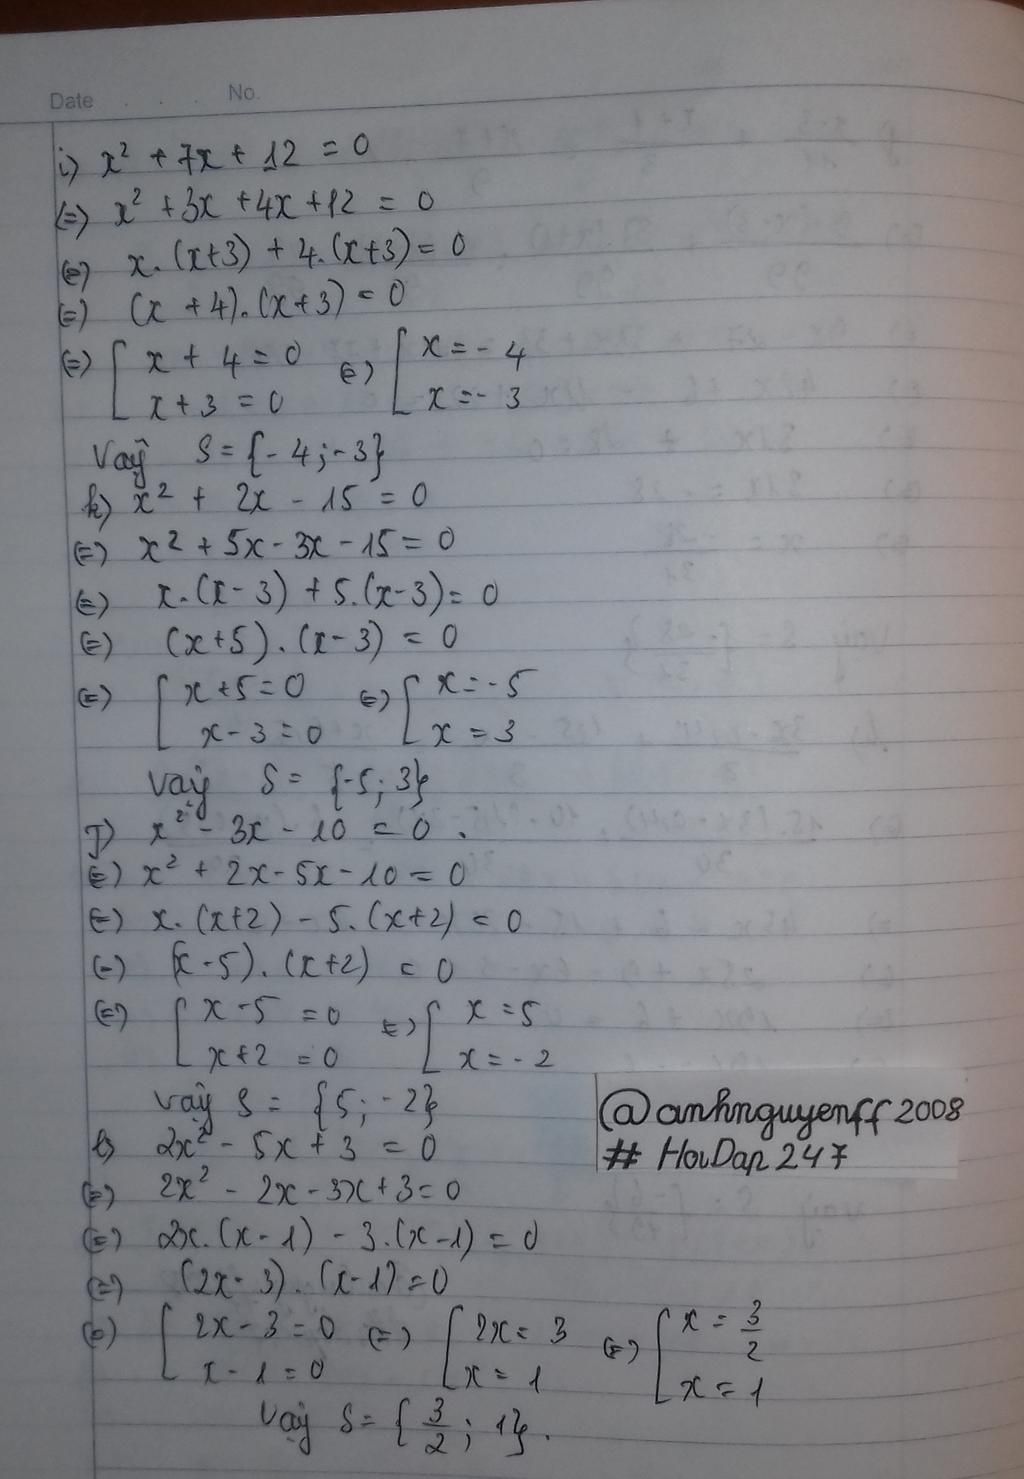 Date . . . No.
i) x² + 7x + 12 = 0
(=) x² + 3x + 4x + 12 = 0
(=) x.(x+3) + 4.(x+3) = 0
(=) (x + 4).(x+3) = 0
(=) [ x + 4 = 0 (=) [ x = - 4
x + 3 = 0 x = - 3
Vậy S = {- 4 ; - 3}
k) x² + 2x - 15 = 0
(=) x² + 5x - 3x - 15 = 0
(=) x.(x - 3) + 5.(x - 3) = 0
(=) (x+5).(x - 3) = 0
(=) [ x + 5 = 0 (=) [ x = - 5
x - 3 = 0 x = 3
Vậy S = {-5 ; 3}
J) x² - 3x - 10 = 0 .
(=) x² + 2x - 5x - 10 = 0
(=) x.(x+2) - 5.(x+2) = 0
(=) (x - 5).(x+2) = 0
(=) [ x - 5 = 0 (=) [ x = 5
x + 2 = 0 x = - 2
Vậy S = {5 ; - 2}
@anhnguyenff2008
# HoiDap 247
l) 2x² - 5x + 3 = 0
(=) 2x² - 2x - 3x + 3 = 0
(=) 2x.(x - 1) - 3.(x - 1) = 0
(=) (2x - 3).(x - 1) = 0
(=) [ 2x - 3 = 0 (=) [ 2x = 3 (=) [ x = 3/2
x - 1 = 0 x = 1 x = 1
Vậy S = { 3/2 ; 1}.